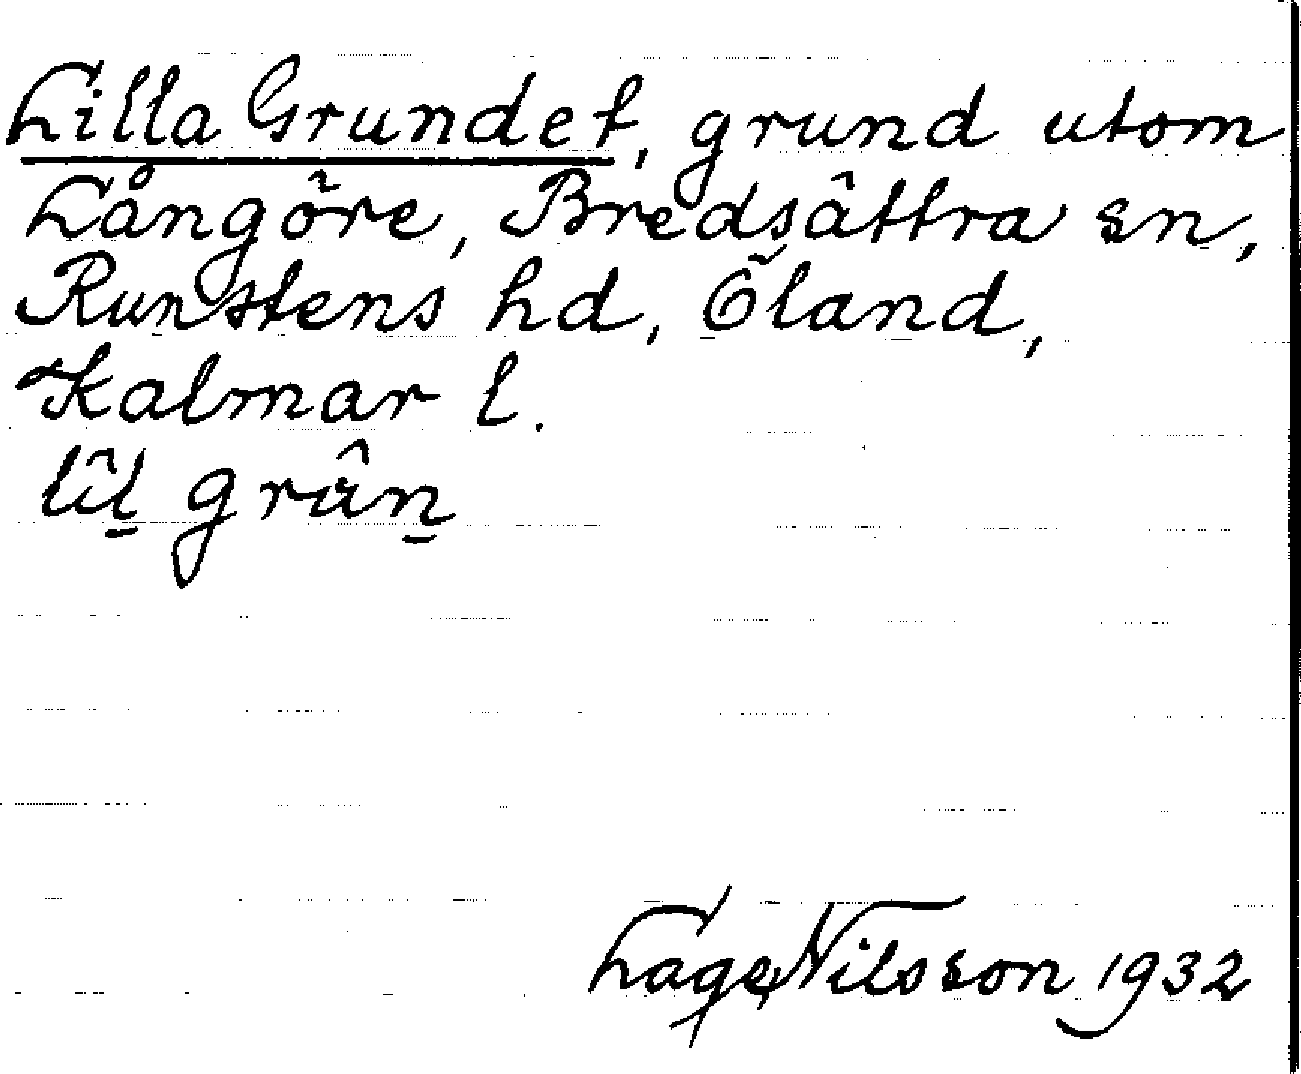 Lilla Grundet, grund utom
Långöre, Bredsättra sn,
Runstens hd, Öland,
Kalmar l.
lîl grân
Lage Nilsson 1932